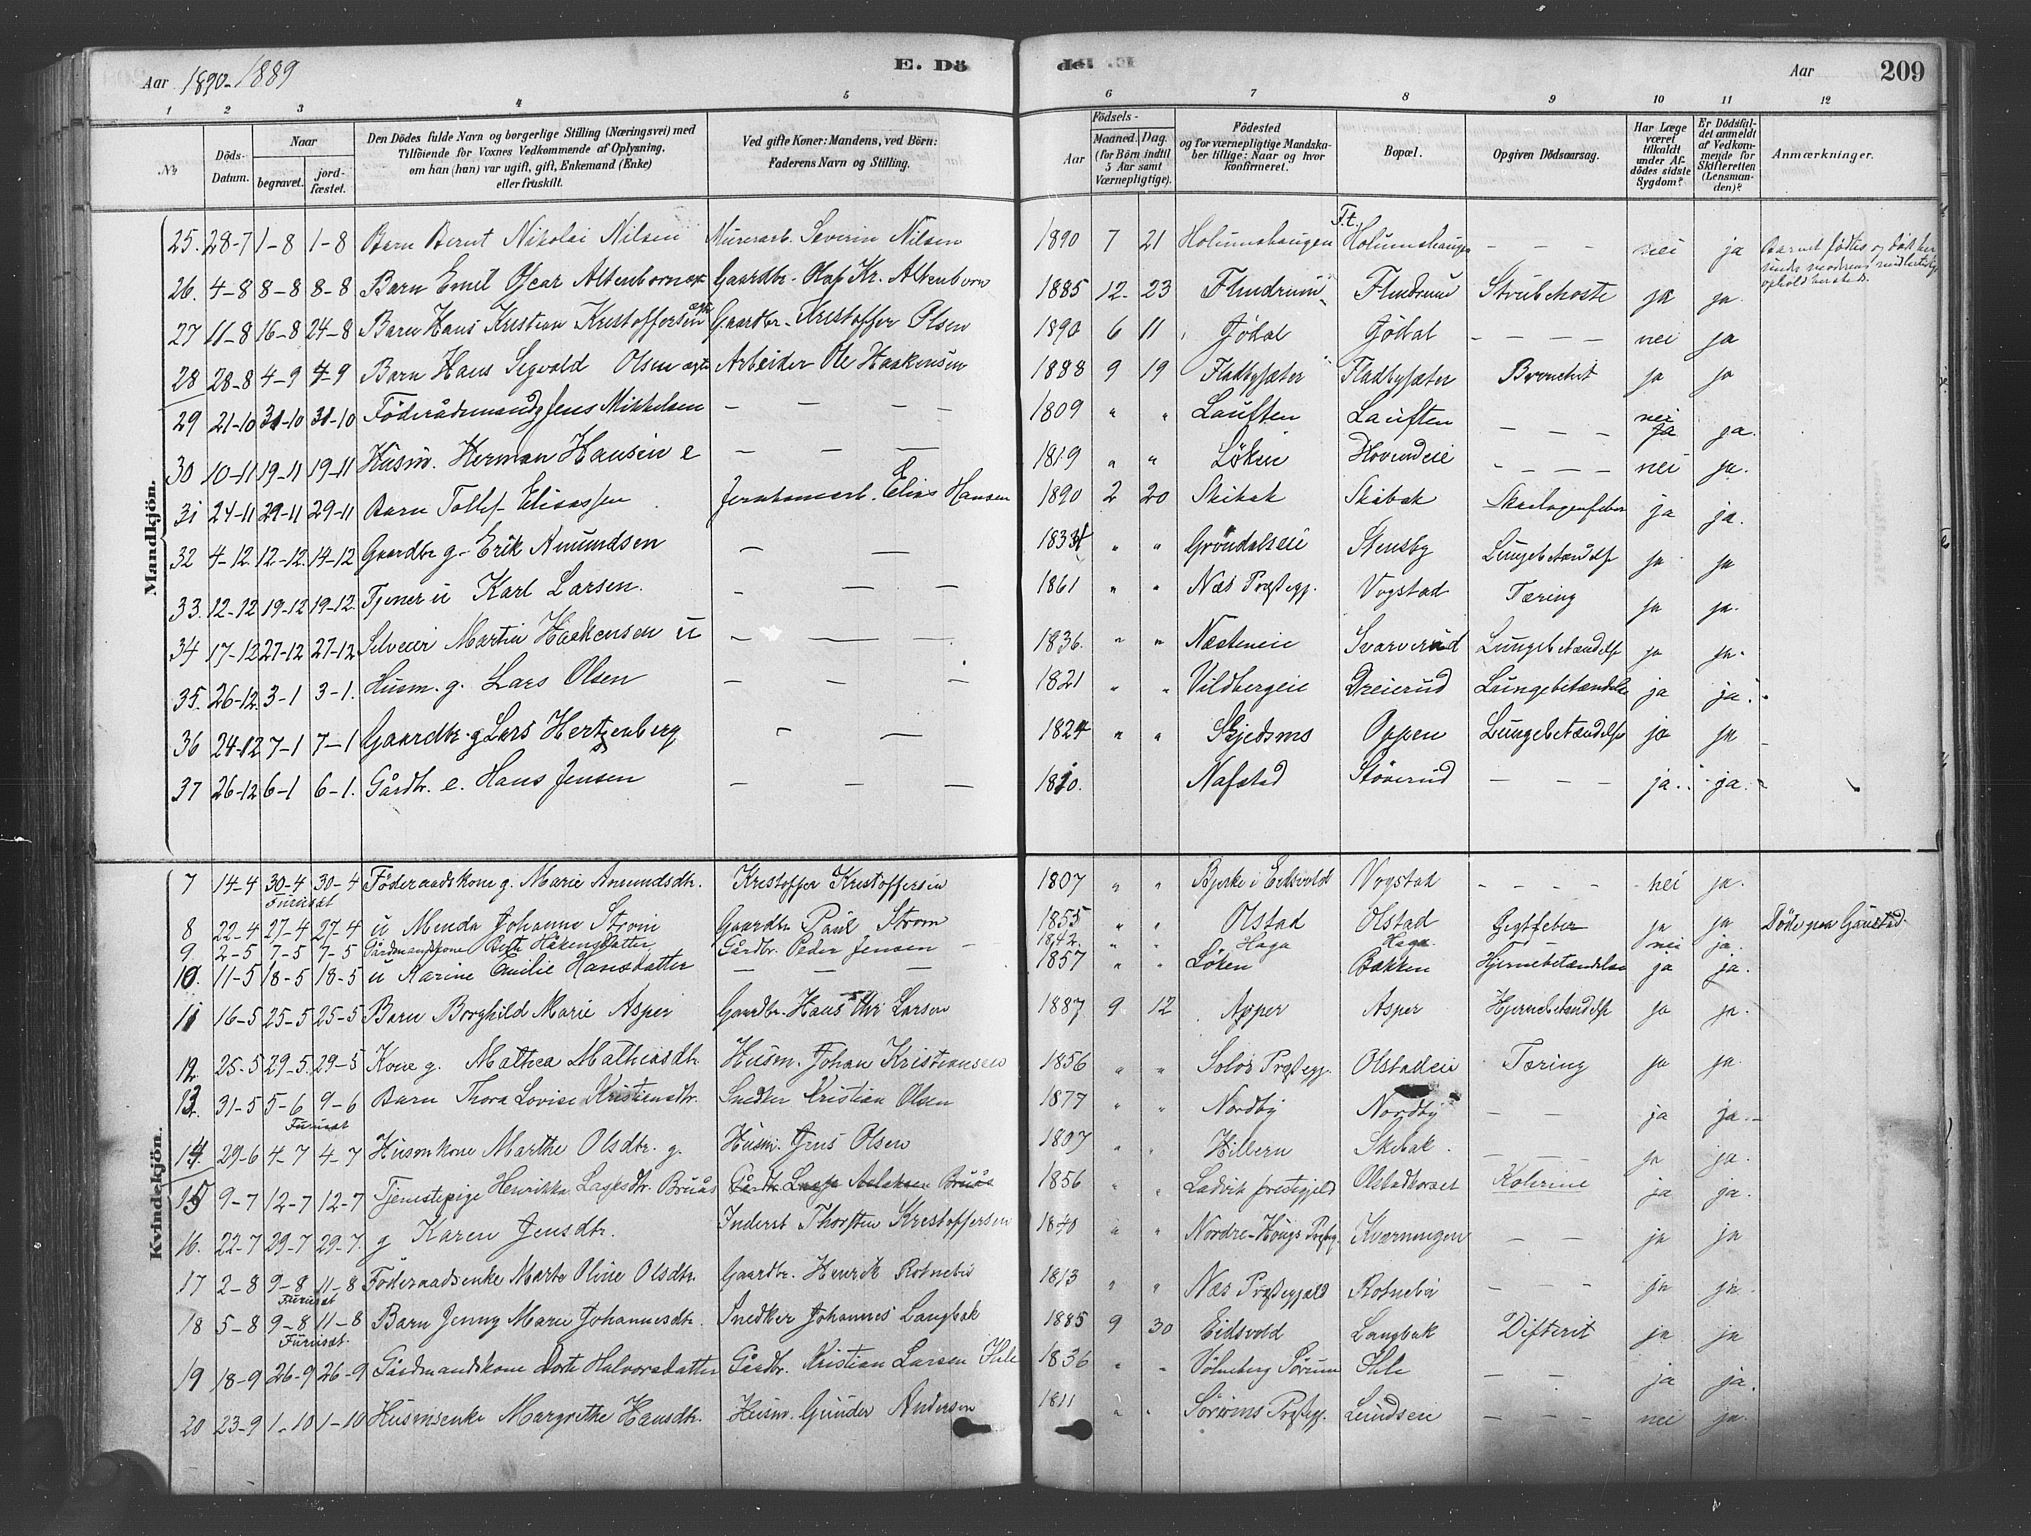 Aar 1890-1889 E. Dö de. E. Aar 209
1 2 3 4 5 6 7 8 9 10 11 12
№ Döds-Datum. Naar begravet. jord-fæstet. Den Dödes fulde Navn og borgerlige Stilling (Næringsvei) med Tilföiende for Voxnes Vedkommende af Oplysning, om han (hun) var ugift, gift, Enkemand (Enke) eller fraskilt. Ved gifte Koner: Mandens, ved Börn: Faderens Navn og Stilling. Födsels- Aar Maaned. Dag. (for Börn indtil 5 Aar samt Værnepligtige). Födested og for værnepligtige Mandska-ber tillige: Naar og hvor konfirmeret. Bopæl. Opgiven Dödsaarsag. Har Læge været tilkaldt under Af-dödes sidste Sygdom? Er Dödsfal-det anmeldt af Vedkom-mende for Skifteretten (Lensman-den)? Anmærkninger.
Mandkjön.
25. 28-7 1-8 1-8 Barn Bernt Nikolai Nilsen Murerarb. Severin Nilsen 1890 7 21 Holumshaugen Ft. Holumshaugen - - - nei ja Barnet födtes og döde her under moderens midlertidige ophold hersteds.
26. 4-8 8-8 8-8 Barn Emil Oscar Altenborn ægt Gaardbr. Olaf Kr. Altenborn 1885 12 23 Flndrum Flndrum Strubehoste ja ja.
27 11-8 16-8 24-8 Barn Hans Kristian Kristoffersen ægte Gaardbr. Kristoffer Olsen 1890 6 11 Jödal Jödal - - - - nei ja
28 28-8 4-9 4-9 Barn Hans Segvald Olsen ægte Arbeider Ole Haakensen 1888 9 19 Fladbysæter Fladbysæter Bronchit ja ja
29 21-10 31-10 31-10 Föderådsmand g Jens Mikkelsen - - - - 1809 " " Lauften Lauften - - - nei ja ja.
30 10-11 19-11 19-11 Husm. Herman Hansen e - - - 1819 " " Löken Hovindeie - - - - nei ja.
31 24-11 29-11 29-11 Barn Tollef Eliassen Jernbanearb. Elias Hansen 1890 2 20 Skibak Skibak Skarlagensfeber ja ja.
32 4-12. 12-12. 14-12 Gaardbr g. Erik Amundsen - - 1834 " " Gröndalseie Stensby Lungebetændelse ja ja
33. 12-12 19-12 19-12. Tjener u Karl Larsen. - - - 1861 " " Næs Præstegj. Vogstad Tæring ja ja.
34 17-12 27-12 27-12 Selveier Martin Haakensen u - - - 1836. " " Næsteneie Svarverud Lungebetændelse ja ja.
35. 26-12. 3-1 3-1. Husm. g. Lars Olsen - - - 1821 " " Vildbergeie Dreierud Lungebetændelse ja ja.
36 24-12 7-1 7-1 Gaardbr. g Lars Hertzenberg - - 1824 " " Skjedsmo Oppen Lungebetændelse ja ja
37 26-12 6-1 6-1. Gårdbr. e. Hans Jensen - - - 1810. Nafstad Stöverud - - - ja. ja.
Kvindekjön.
7 14-4 30-4 30-4 Föderaadskone g. Marie Amundsdtr. Kristoffer Kristoffersen 1807 " " Bjerke i Eidsvold Vogstad - - - - nei ja.
Furuset
8 22-4 27-4 27-4 u Menda Johanne Strom Gaardbr Paul Strom 1855 " " Olstad Olstad Gigtfeber ja ja Döde paa Gaustad
9 2-5 7-5 7-5 Gårdmandskone Berte Håkensdatter Gårdbr. Peder Jensen - 1842. " " Haga Haga nei ja.
10. 11-5 18-5 18-5 u Karine Emilie Hansdatter - - - 1857 " " Löken Bakken Hjernebetændelse ja ja.
11 16-5 25-5 25-5 Barn Borghild Marie Asper Gaardbr. Hans Chr Larsen 1887 9 12 Asper Asper Hjernebetændelse ja ja.
12. 25-5 29-5. 29-5 Kone g. Mathea Mathiasdtr. Husm. Johan Kristiansen 1856 " " Solör Præstegj. Olstadeie Tæring ja ja.
13. 31-5 5-6 9-6 Barn Thora Lovise Kristiansdtr. Snedker Kristian Olsen 1877 " " Nordby Nordby - - ja ja.
Furuset
14 29-6 4-7 4-7 Husmkone Marthe Olsdtr. g. Husm. Jens Olsen 1807 " " Hillern Skibak. - - ja ja.
15 9-7 12-7 12-7 Tjenestepige Henrikke Lassesdtr. Bruås Gårdbr. Lasse Aslaksen Bruås 1856 " " Ladvik præstegjeld Olstadkorset Kolerine ja ja.
16. 22-7 29-7 29-7. g Karen Jensdtr. Inderst Thorsten Kristoffersen 1840 " " Nordre-Höugs Præstg. Kværningen - - ja ja
17 2-8 9-8 11-8 Föderaadsenke Marte Oline Olsdtr. Gaardbr. Henrik Rotnebö 1813 " " Næs Præstegjæld Rotnebö - - ja ja.
Furuset
18 5-8 9-8 11-8 Barn Jenny Marie Johannesdtr. Snedker Johannes Langbak 1885 9 30 Eidsvold Langbak Difterit ja ja
Furuset
19 18-9 26-9 26-9 Gårdmandskone Dorte Halvorsdatter Gårdbr. Kristian Larsen Ihle 1836 " " Völneberg Sörum Ihle - - ja ja.
20 23-9 1-10 1-10 Husmsenke Margrethe Hansdtr. Husm. Gunder Andersen 1811 " " Sörums Præstegj. Lundseie - - - nei ja.